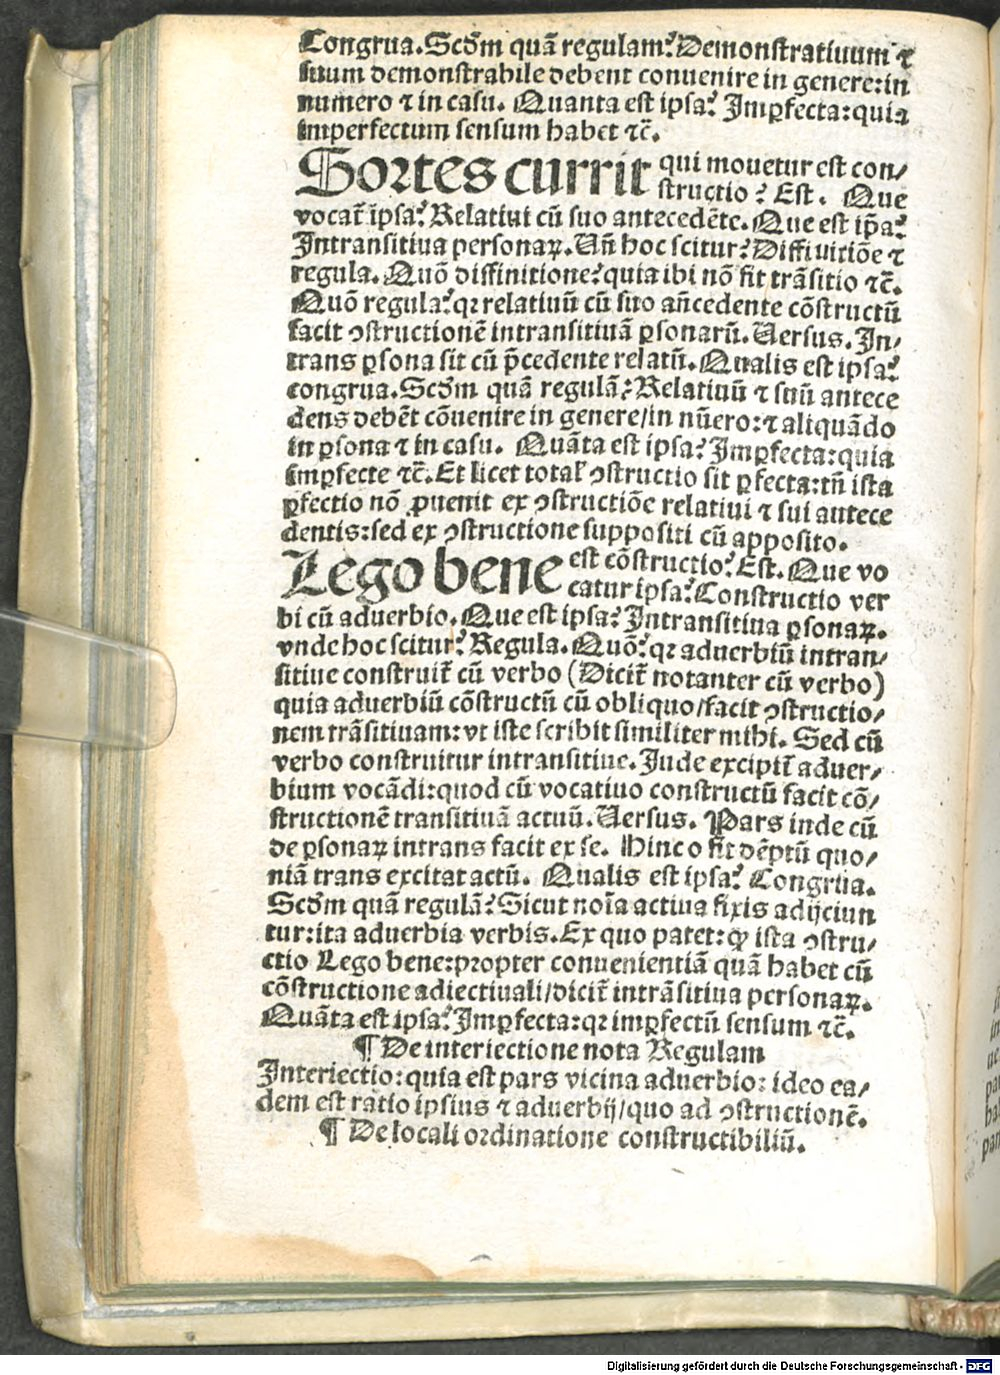 Congrua. Scd̄m quā regulam? Demonstratiuum ⁊
suum demonstrabile debent conuenire in genere: in
numero ⁊ in casu. Quanta est ipsa? Imꝑfecta: quia
imperfectum sensum habet ⁊c̄.
Sortes currit qui mouetur est con/
structio? Est. Que
vocat̄ ip̄sa? Relatiui cū suo antecedēte. Que est ip̄a?
Intransitiua personaꝝ. Un̄ hoc scitur? Diffinitiōe ⁊
regula. Quō diffinitione? quia ibi nō fit trāsitio ⁊c̄.
Quō regula? qꝛ relatiuū cū suo an̄cedente cōstructū
facit ꝯstructionē intransitiuā ꝑsonarū. Uersus. In/
trans ꝑsona sit cū p̄cedente relatū. Qualis est ipsa?
congrua. Scd̄m quā regulā? Relatiuū ⁊ suū antece
dens debēt cōuenire in genere/in nūero: ⁊ aliquādo
in ꝑsona ⁊ in casu. Quāta est ipsa? Imꝑfecta: quia
imꝑfecte ⁊c̄. Et licet total' ꝯstructio sit ꝑfecta: tn̄ ista
ꝑfectio nō ꝓuenit ex ꝯstructiōe relatiui ⁊ sui antece
dentis: sed ex ꝯstructione suppositi cū apposito.
Lego bene est cōstructio? Est. Que vo
catur ipsa? Constructio ver
bi cū aduerbio. Que est ipsa? Intransitiua ꝑsonaꝝ.
vnde hoc scitur? Regula. Quō? qꝛ aduerbiū intran/
sitiue construit̄ cū verbo (Dicit̄ notanter cū verbo)
quia aduerbiū cōstructū cū obliquo/facit ꝯstructio/
nem trāsitiuam: vt iste scribit similiter mihi. Sed cū
verbo construitur intransitiue. Inde excipit̄ aduer/
bium vocādi: quod cū vocatiuo constructū facit cō/
structionē transitiuā actuū. Uersus. Pars inde cū
de ꝑsonaꝝ intrans facit ex se. Hinc o fit dēptū quo/
niā trans excitat actū. Qualis est ipsa? Congrua.
Scd̄m quā regulā? Sicut noīa actiua fixis adijciun
tur: ita aduerbia verbis. Ex quo patet: ꝙ ista ꝯstru/
ctio Lego bene: propter conuenientiā quā habet cū
cōstructione adiectiuali/dicit̄ intrāsitiua personaꝝ.
Quāta est ipsa? Imꝑfecta: qꝛ imꝑfectū sensum ⁊c̄.
¶ De interiectione nota Regulam
Interiectio: quia est pars vicina aduerbio: ideo ea/
dem est ratio ipsius ⁊ aduerbij/quo ad ꝯstructionē.
¶ De locali ordinatione constructibiliū.
Digitalisierung gefördert durch die Deutsche Forschungsgemeinschaft - DFG